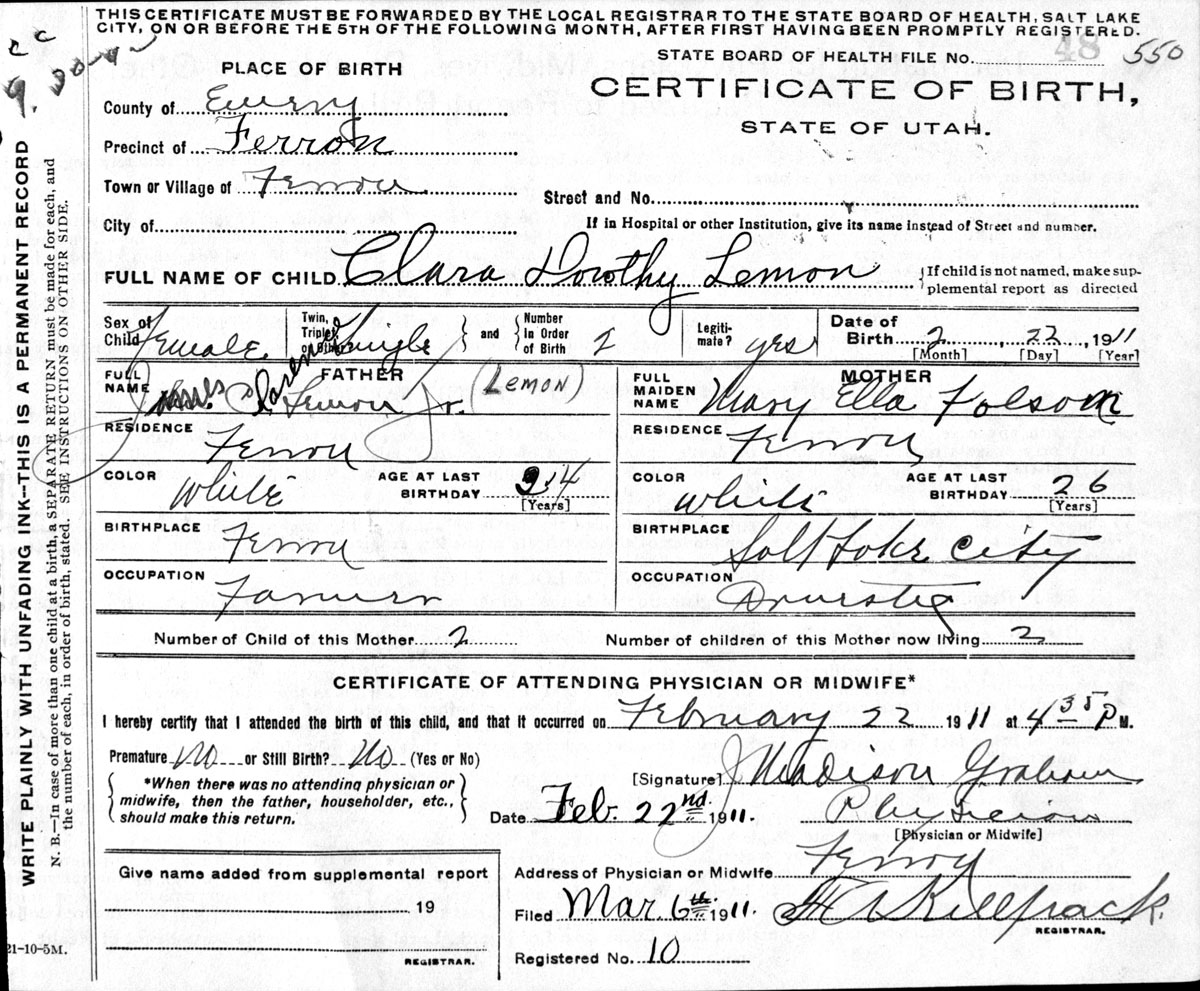 THIS CERTIFICATE MUST BE FORWARDED BY THE LOCAL REGISTRAR TO THE STATE BOARD OF HEALTH, SALT LAKE
CITY, ON OR BEFORE THE 5TH OF THE FOLLOWING MONTH, AFTER FIRST HAVING BEEN PROMPTLY REGISTERED.
STATE BOARD OF HEALTH FILE No. 48 550
PLACE OF BIRTH
CERTIFICATE OF BIRTH,
STATE OF UTAH.
County of Emery
Precinct of Ferron
Town or Village of Ferron
Street and No.
City of
If in Hospital or other Institution, give its name instead of Street and number.
FULL NAME OF CHILD Clara Dorothy Lemon { If child is not named, make sup-
plemental report as directed
Sex of Child female. Twin, Triplet or Other? Single } and { Number In Order of Birth 2 Legiti-mate? yes Date of Birth 2, 22, 1911
[Month] [Day] [Year]
FATHER
FULL NAME James Clarence Lemon Jr. (LEMON)
RESIDENCE Ferron
COLOR White AGE AT LAST BIRTHDAY 24
[Years]
BIRTHPLACE Ferron
OCCUPATION Farmer
MOTHER
FULL MAIDEN NAME Mary Ella Folsom
RESIDENCE Ferron
COLOR White AGE AT LAST BIRTHDAY 26
[Years]
BIRTHPLACE Salt Lake City
OCCUPATION Domestic
Number of Child of this Mother 2 Number of children of this Mother now living 2
CERTIFICATE OF ATTENDING PHYSICIAN OR MIDWIFE*
I hereby certify that I attended the birth of this child, and that it occurred on February 22 1911 at 4 35 P M.
Premature No or Still Birth? No (Yes or No)
{ *When there was no attending physician or
midwife, then the father, householder, etc.,
should make this return. }
[Signature] J Madison Graham
Date Feb. 22nd. 1911. Physician
[Physician or Midwife]
Address of Physician or Midwife Ferron
Give name added from supplemental report
19
REGISTRAR.
Filed Mar 6th 1911. Killpack
REGISTRAR.
Registered No. 10
21-10-5M.
WRITE PLAINLY WITH UNFADING INK--THIS IS A PERMANENT RECORD
N. B.--In case of more than one child at a birth, a SEPARATE RETURN must be made for each, and
the number of each, in order of birth, stated. SEE INSTRUCTIONS ON OTHER SIDE.